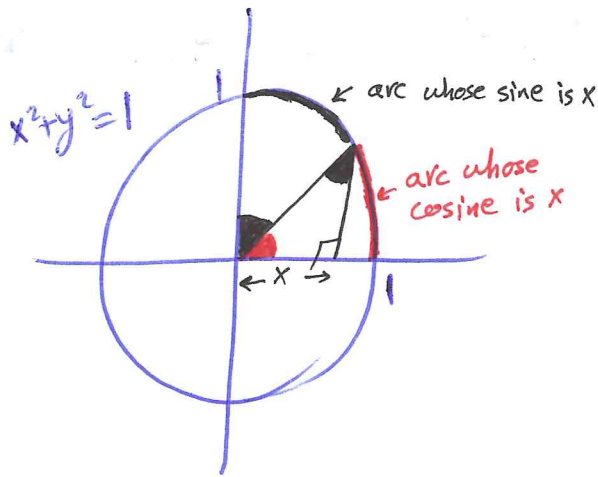 1
x²+y²=1
arc whose sine is x
arc whose
cosine is x
x
1